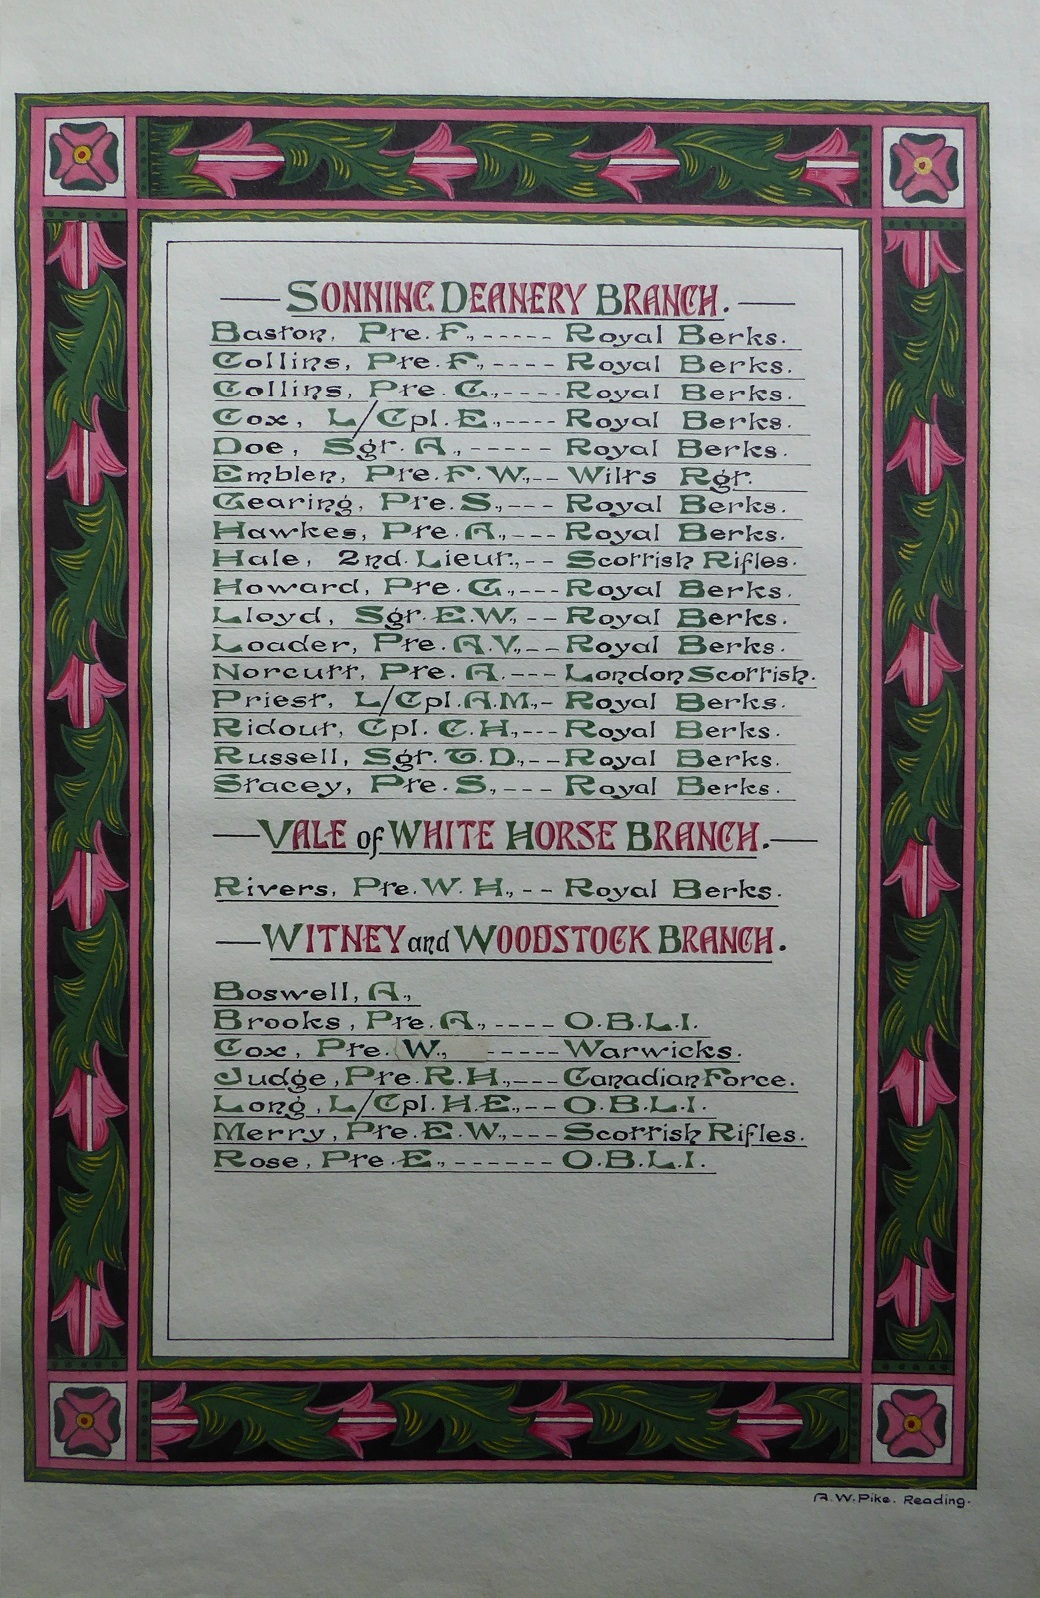 SONNING DEANERY BRANCH.
Baston, Pte. F., ----- Royal Berks.
Collins, Pte. F., ---- Royal Berks.
Collins, Pte. G., ---- Royal Berks.
Cox, L/Cpl. E., ---- Royal Berks.
Doe, Sgt. A., ----- Royal Berks.
Emblen, Pte. F. W., -- Wilts Rgt.
Gearing, Pte. S., --- Royal Berks.
Hawkes, Pte. A., --- Royal Berks.
Hale, 2nd. Lieut., -- Scottish Rifles.
Howard, Pte. G., --- Royal Berks.
Lloyd, Sgt. E. W., -- Royal Berks.
Loader, Pte. A. V., -- Royal Berks.
Norcutt, Pte. A. --- London Scottish.
Priest, L/Cpl. A. M., - Royal Berks.
Ridout, Cpl. C. H., --- Royal Berks.
Russell, Sgt. T. D., -- Royal Berks.
Stacey, Pte. S., --- Royal Berks.
VALE of WHITE HORSE BRANCH.
Rivers, Pte. W. H., -- Royal Berks.
WITNEY and WOODSTOCK BRANCH.
Boswell, A.,
Brooks, Pte. A., ---- O.B.L.I.
Cox, Pte. W., ----- Warwicks.
Judge, Pte. R. H., --- Canadian Force.
Long, L/Cpl. H. E., -- O.B.L.I.
Merry, Pte. E. W., --- Scottish Rifles.
Rose, Pte. E., ------ O.B.L.I.
A. W. Pike. Reading.